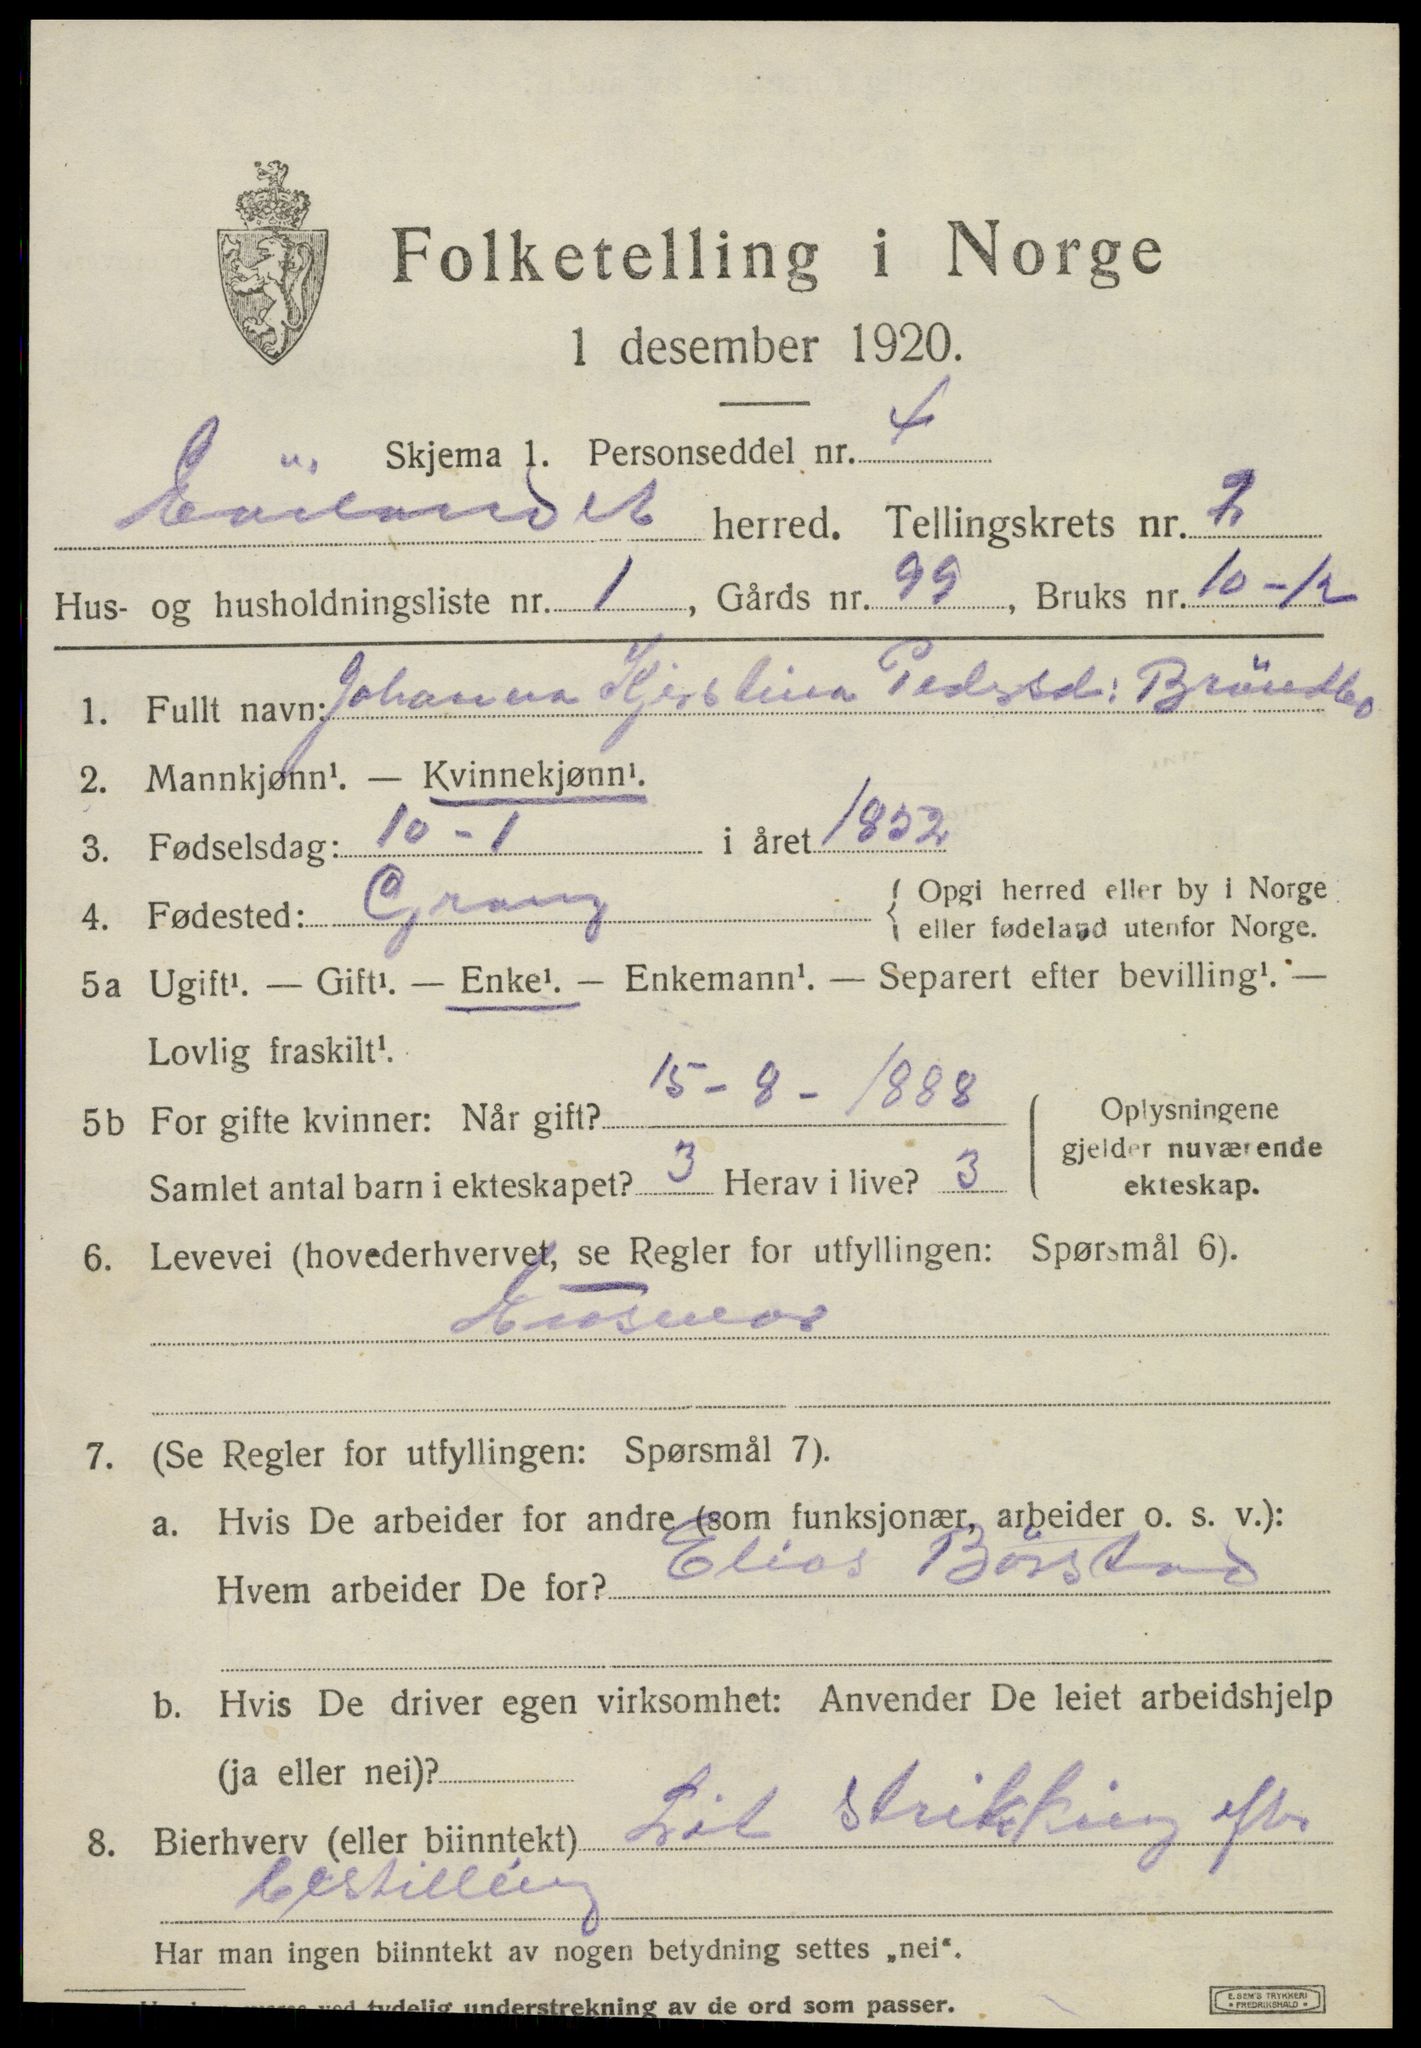 Folketelling i Norge
1 desember 1920.
Skjema 1. Personseddel nr. 4
herred. Tellingskrets nr. 2
Hus- og husholdningsliste nr. 1, Gårds nr. 99, Bruks nr. 10-12
1. Fullt navn: Johanna Kjerstina Pedersd: Bröndbo
2. Mannkjønn¹. — Kvinnekjønn¹.
3. Fødselsdag: 10 - 1 i året 1852
4. Fødested: Grong { Opgi herred eller by i Norge
eller fødeland utenfor Norge.
5a Ugift¹. — Gift¹. — Enke¹. — Enkemann¹. — Separert efter bevilling¹. —
Lovlig fraskilt¹.
5b For gifte kvinner: Når gift? 15 - 8 - 1888
Samlet antal barn i ekteskapet? 3 Herav i live? 3
Oplysningene
gjelder nuværende
ekteskap.
6. Levevei (hovederhvervet, se Regler for utfyllingen: Spørsmål 6).
Husmor
7. (Se Regler for utfyllingen: Spørsmål 7).
a. Hvis De arbeider for andre (som funksjonær, arbeider o. s. v.):
Hvem arbeider De for? Elias Börstad
b. Hvis De driver egen virksomhet: Anvender De leiet arbeidshjelp
(ja eller nei)?
8. Bierhverv (eller biinntekt) Lit strikking efter
bestilling
Har man ingen biinntekt av nogen betydning settes „nei“.
ved tydelig understrekning av de ord som passer.
E. SEM'S TRYKKERI
• FREDRIKSHALD •